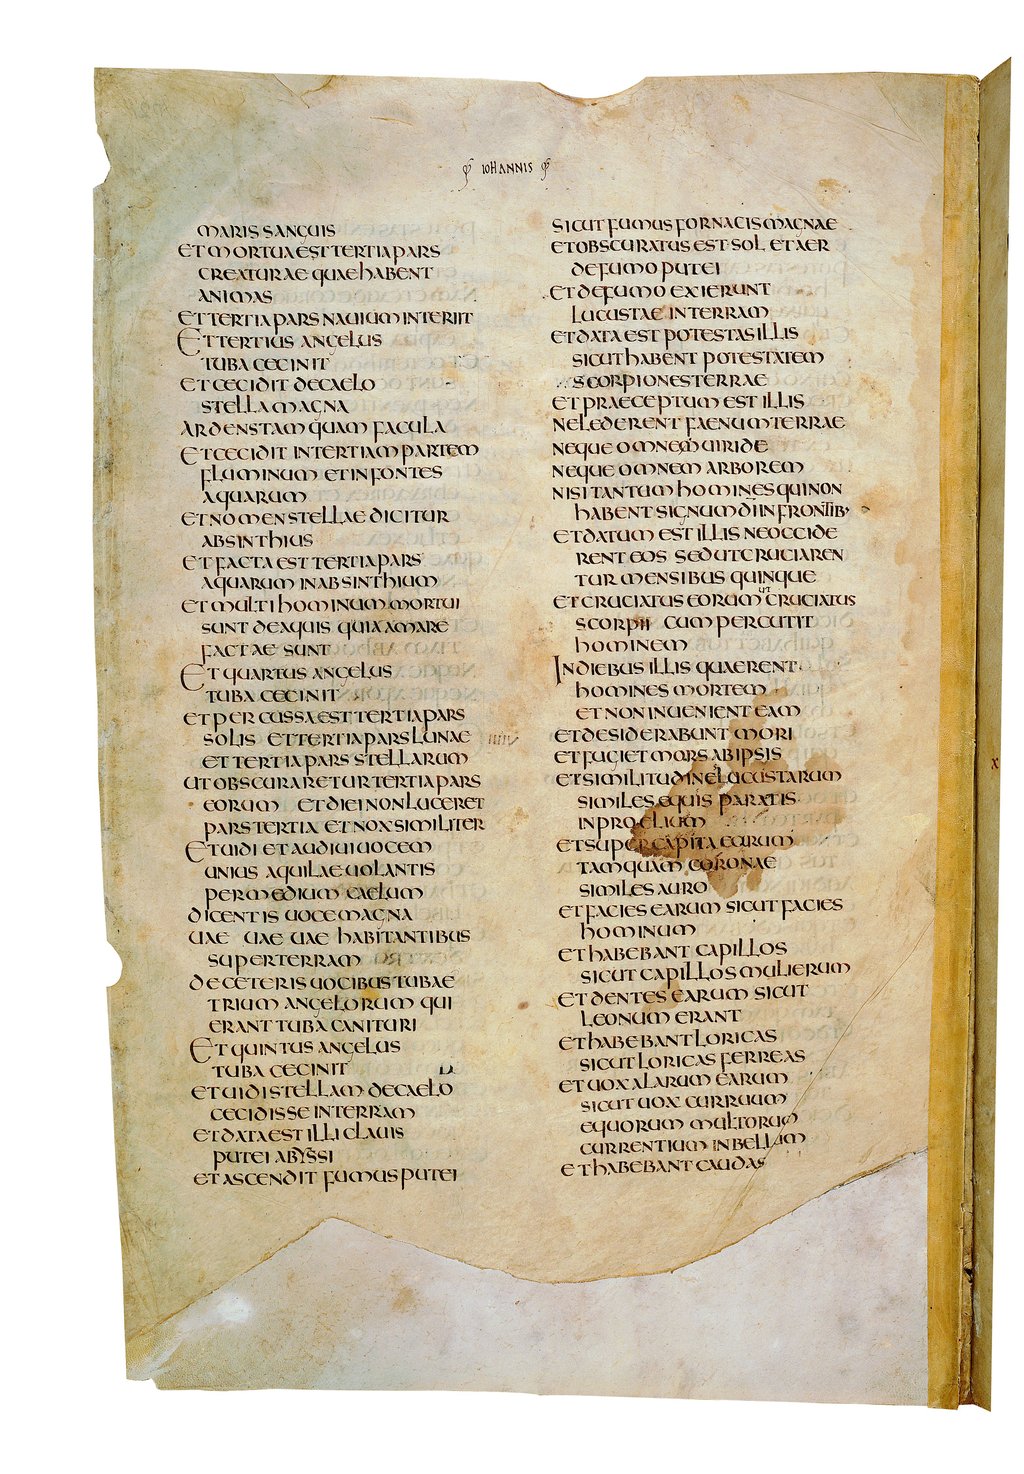 IOHANNIS
MARIS SANGUIS
ET MORTUA EST TERTIA PARS
CREATURAE QUAE HABENT
ANIMAS
ET TERTIA PARS NAUIUM INTERIIT
ET TERTIUS ANGELUS
TUBA CECINIT
ET CECIDIT DE CAELO
STELLA MAGNA
ARDENS TAMQUAM FACULA
ET CECIDIT IN TERTIAM PARTEM
FLUMINUM ET IN FONTES
AQUARUM
ET NOMEN STELLAE DICITUR
ABSINTHIUS
ET FACTA EST TERTIA PARS
AQUARUM IN ABSINTHIUM
ET MULTI HOMINUM MORTUI
SUNT DE AQUIS QUIA AMARE
FACTAE SUNT
ET QUARTUS ANGELUS
TUBA CECINIT
ET PERCUSSA EST TERTIA PARS
SOLIS ET TERTIA PARS LUNAE
ET TERTIA PARS STELLARUM
UT OBSCURARETUR TERTIA PARS
EORUM ET DIEI NON LUCERET
PARS TERTIA ET NOX SIMILITER
ET UIDI ET AUDIUI UOCEM
UNIUS AQUILAE UOLANTIS
PER MEDIUM CAELUM
DICENTIS UOCE MAGNA
UAE UAE UAE HABITANTIBUS
SUPER TERRAM
DE CETERIS UOCIBUS TUBAE
TRIUM ANGELORUM QUI
ERANT TUBA CANITURI
ET QUINTUS ANGELUS
TUBA CECINIT
ET UIDI STELLAM DE CAELO
CECIDISSE IN TERRAM
ET DATA EST ILLI CLAUIS
PUTEI ABYSSI
ET ASCENDIT FUMUS PUTEI
SICUT FUMUS FORNACIS MAGNAE
ET OBSCURATUS EST SOL ET AER
DE FUMO PUTEI
ET DE FUMO EXIERUNT
LUCUSTAE IN TERRAM
ET DATA EST POTESTAS ILLIS
SICUT HABENT POTESTATEM
SCORPIONES TERRAE
ET PRAECEPTUM EST ILLIS
NE LEDERENT FAENUM TERRAE
NEQUE OMNEM UIRIDE
NEQUE OMNEM ARBOREM
NISI TANTUM HOMINES QUI NON
HABENT SIGNUM DĪ IN FRONTIB·
ET DATUM EST ILLIS NE OCCIDE
RENT EOS SED UT CRUCIAREN
TUR MENSIBUS QUINQUE
ET CRUCIATUS EORUM UT CRUCIATUS
SCORPII CUM PERCUTIT
HOMINEM
IN DIEBUS ILLIS QUAERENT
HOMINES MORTEM
ET NON INUENIENT EAM
ET DESIDERABUNT MORI
ET FUGIET MORS AB IPSIS
ET SIMILITUDINE LUCUSTARUM
SIMILES EQUIS PARATIS
IN PROELIUM
ET SUPER CAPITA EARUM
TAMQUAM CORONAE
SIMILES AURO
ET FACIES EARUM SICUT FACIES
HOMINUM
ET HABEBANT CAPILLOS
SICUT CAPILLOS MULIERUM
ET DENTES EARUM SICUT
LEONUM ERANT
ET HABEBANT LORICAS
SICUT LORICAS FERREAS
ET UOX ALARUM EARUM
SICUT UOX CURRUUM
EQUORUM MULTORUM
CURRENTIUM IN BELLUM
ET HABEBANT CAUDAS